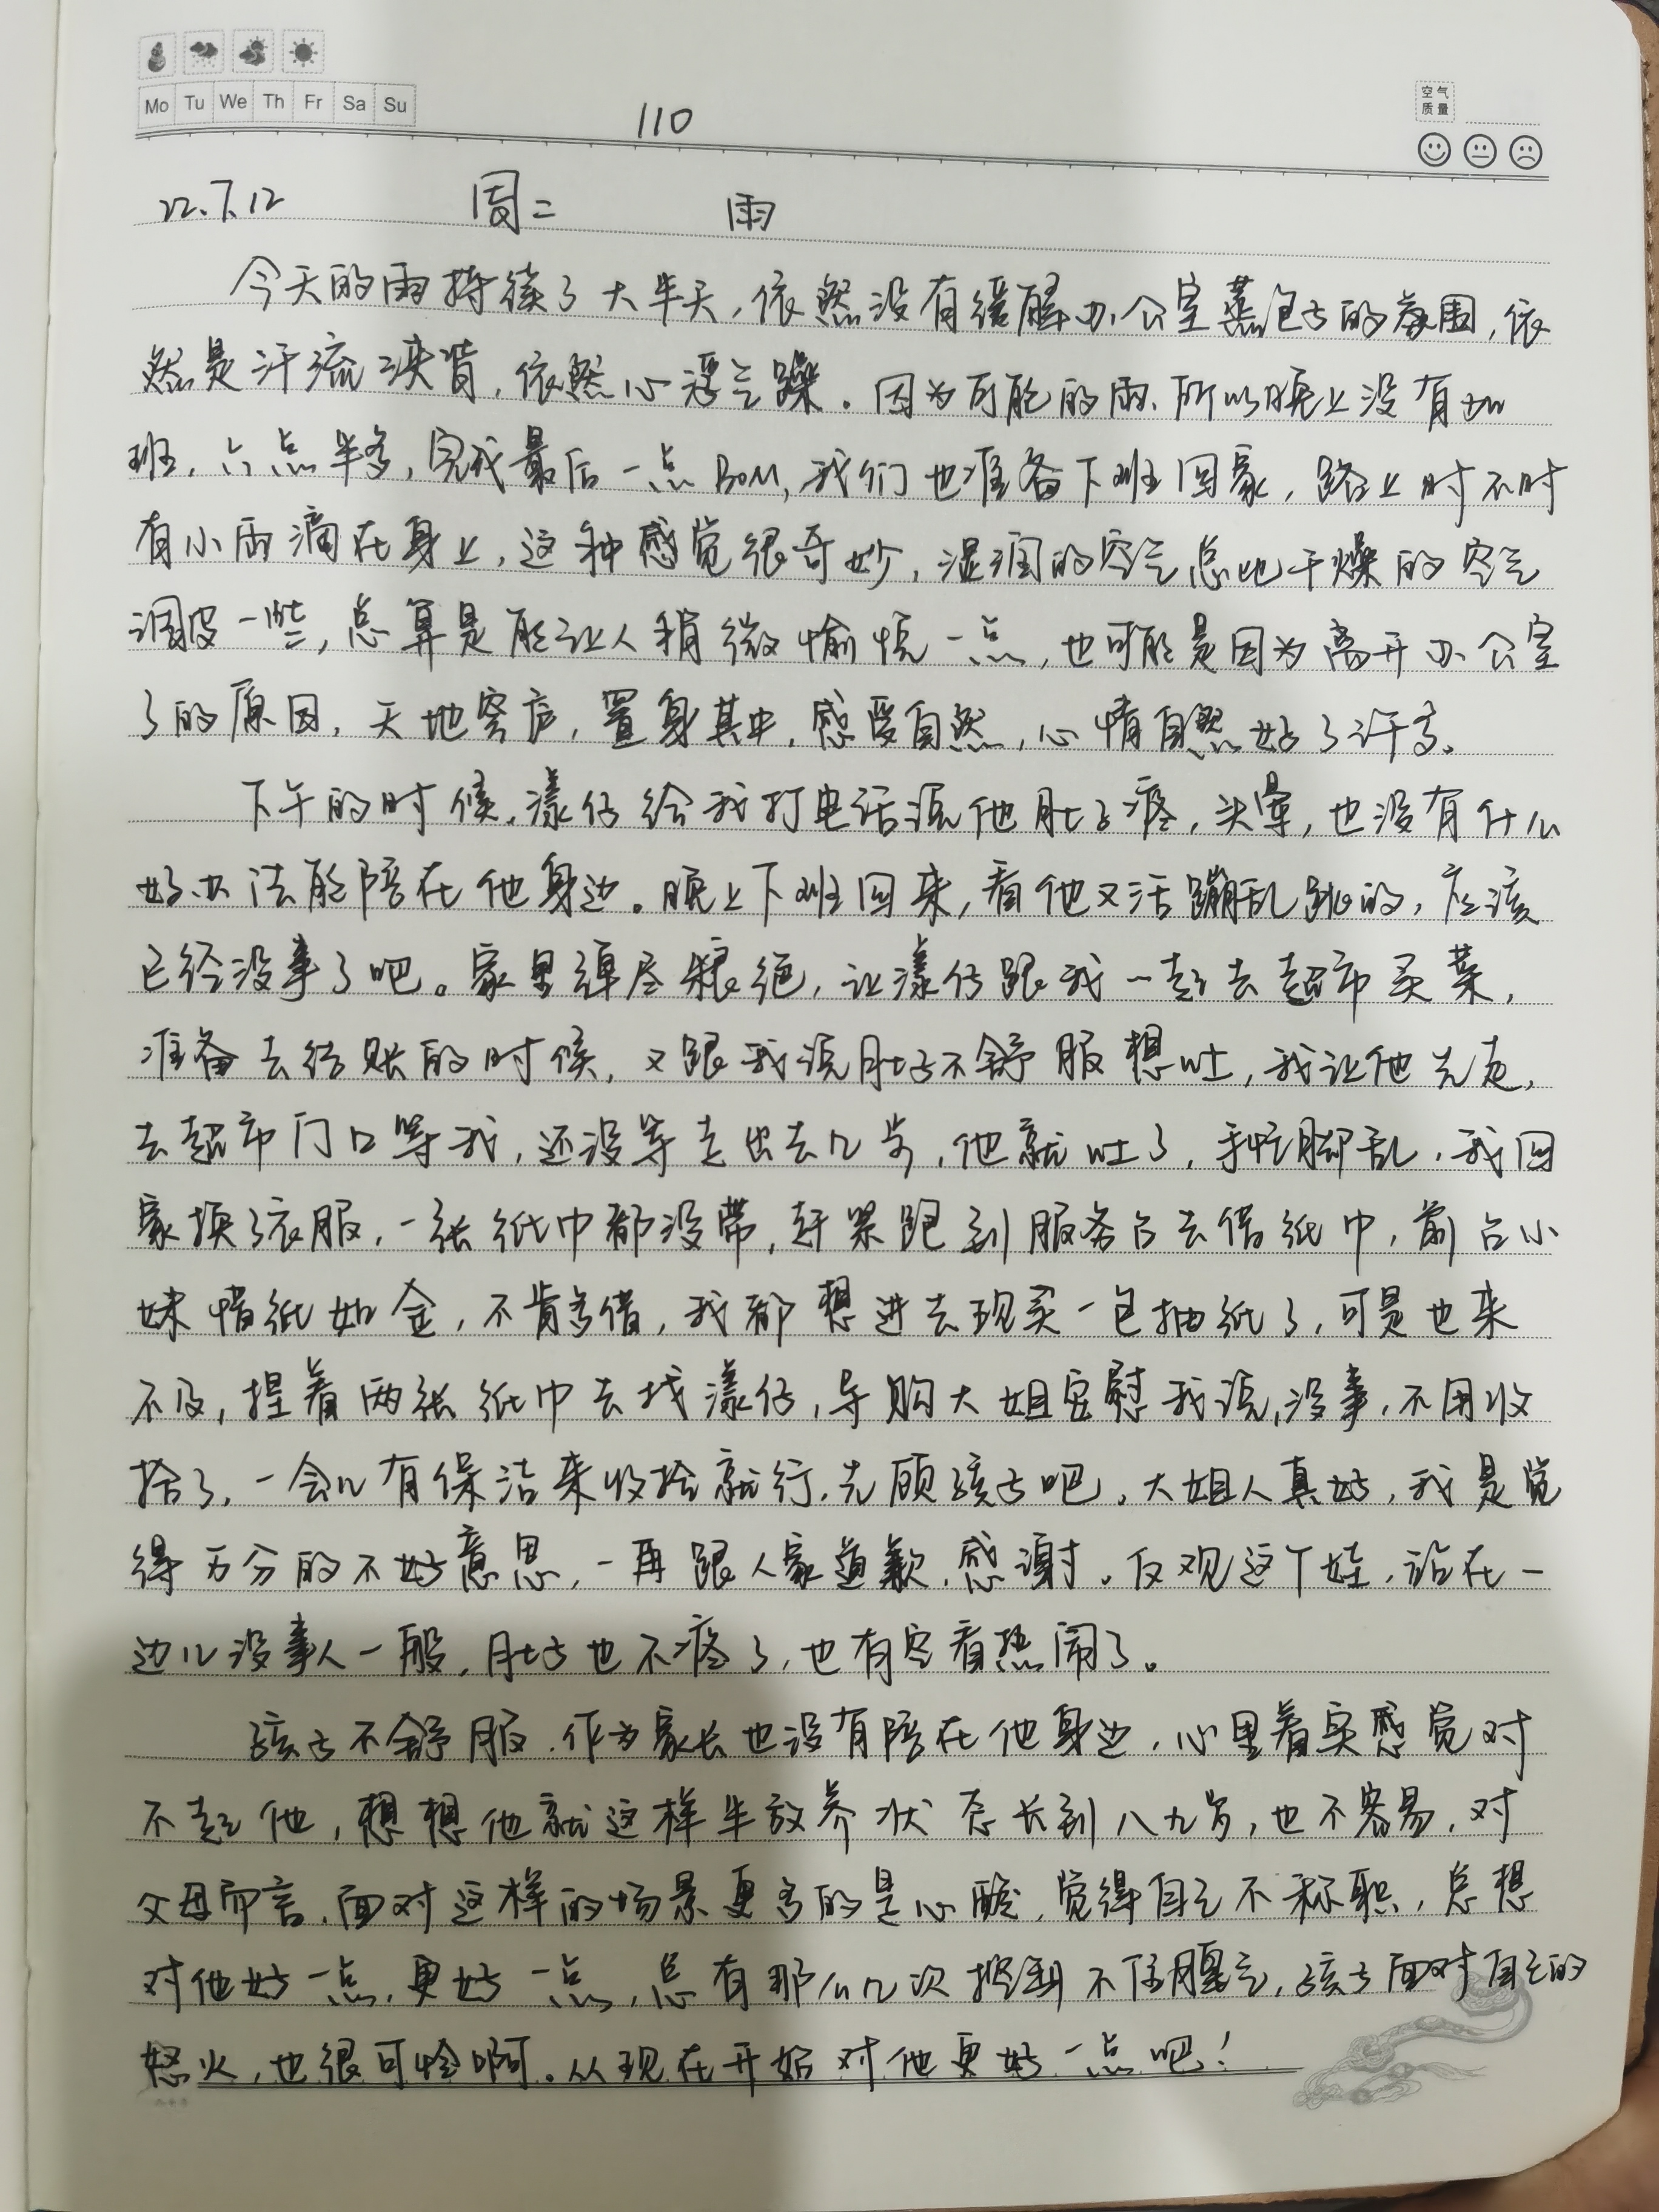 Mo Tu We Th Fr Sa Su
110
空气
质量
22.7.12 周二 雨
今天的雨持续了大半天，依然没有缓解办公室蒸包子的氛围，依
然是汗流浃背，依然心浮气躁。因为可能的雨，所以晚上没有加
班，六点半多，完成最后一点BOM，我们也准备下班回家，路上时不时
有小雨滴在身上，这种感觉很奇妙，湿润的空气总比干燥的空气
调皮一些，总算是能让人稍微愉悦一点，也可能是因为离开办公室
了的原因，天地穹庐，置身其中，感受自然，心情自然好了许多。
下午的时候，漾仔给我打电话说他肚子疼，头晕，也没有什么
好办法能陪在他身边。晚上下班回来，看他又活蹦乱跳的，应该
已经没事了吧。家里弹尽粮绝，让漾仔跟我一起去超市买菜，
准备去结账的时候，又跟我说肚子不舒服想吐，我让他先走，
去超市门口等我，还没等走出去几步，他就吐了，手忙脚乱，我回
家换了衣服，一张纸巾都没带，赶紧跑到服务台去借纸巾，前台小
妹惜纸如金，不肯多借，我都想进去现买一包抽纸了，可是也来
不及，捏着两张纸巾去找漾仔，导购大姐安慰我说，没事，不用收
拾了，一会儿有保洁来收拾就行，先顾孩子吧，大姐人真好，我是觉
得万分的不好意思，一再跟人家道歉，感谢。反观这个娃，站在一
边儿没事人一般，肚子也不疼了，也有空看热闹了。
孩子不舒服，作为家长也没有陪在他身边，心里着实感觉对
不起他，想想他就这样半放养状态长到八九岁，也不容易，对
父母而言，面对这样的场景更多的是心酸，觉得自己不称职，总想
对他好一点，更好一点，总有那么几次控制不住脾气，孩子面对自己的
怒火，也很可怜啊。从现在开始对他更好一点吧！